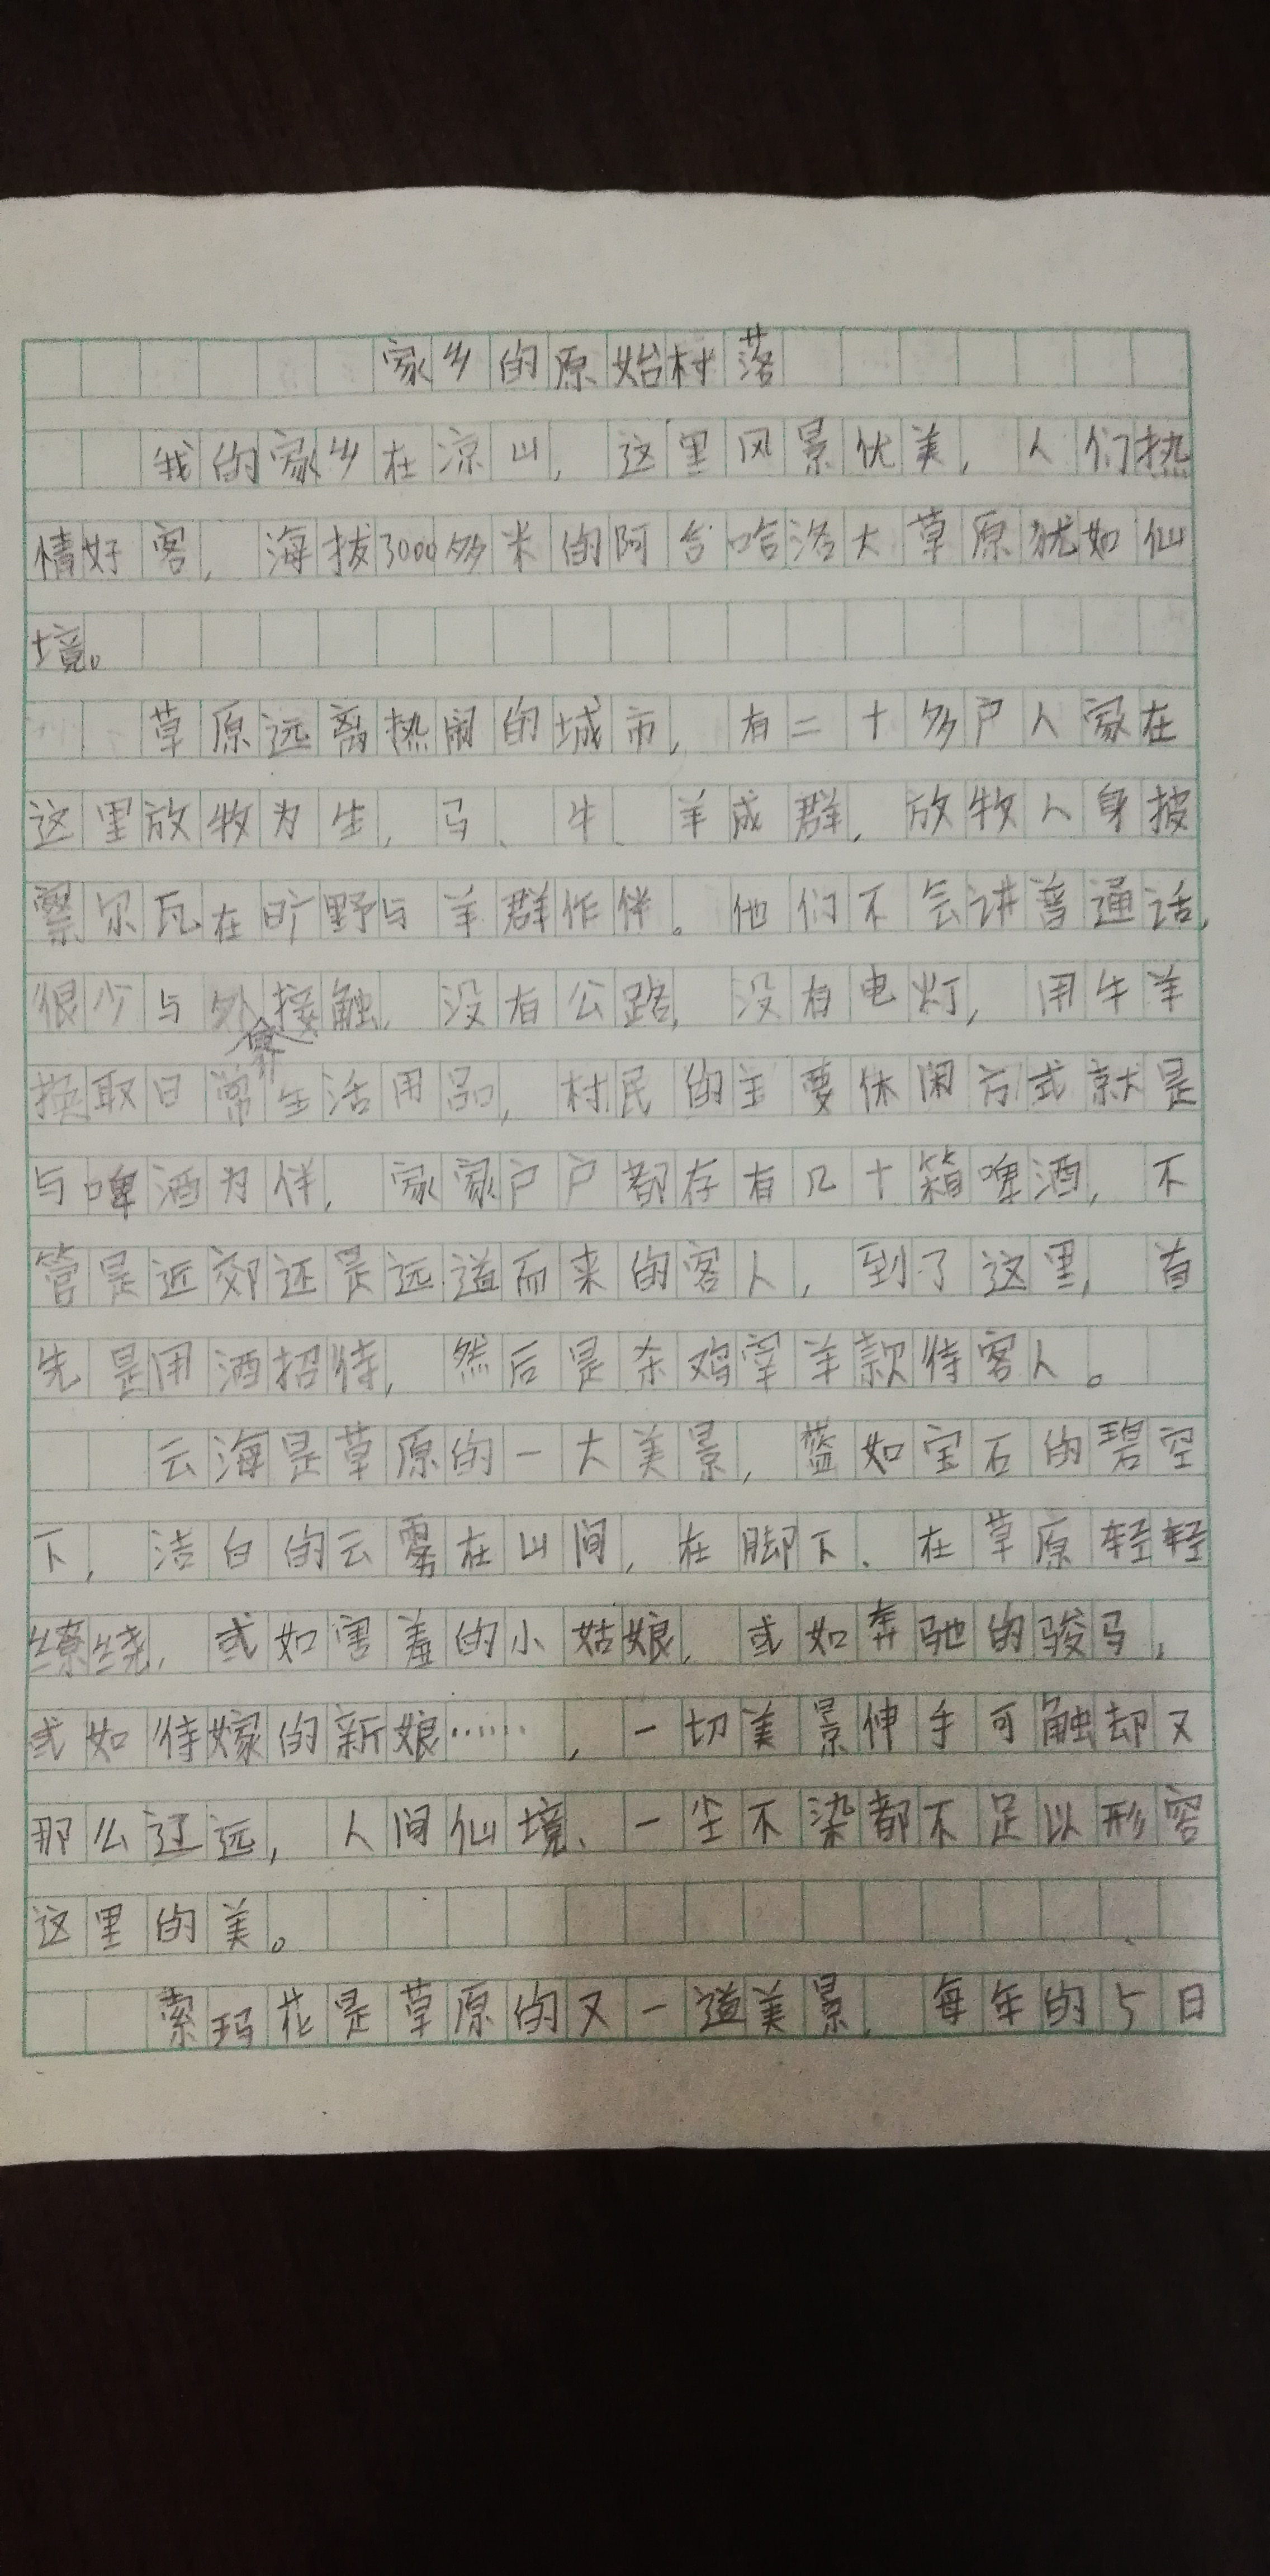 家乡的原始村落
我的家乡在凉山，这里风景优美，人们热
情好客，海拔3000多米的阿合哈洛大草原犹如仙
境。
草原远离热闹的城市，有二十多户人家在
这里放牧为生，马、牛、羊成群，放牧人身披
察尔瓦在旷野与羊群作伴。他们不会讲普通话，
很少与外界接触，没有公路，没有电灯，用牛羊
换取日常生活用品，村民的主要休闲方式就是
与啤酒为伴，家家户户都存有几十箱啤酒，不
管是近郊还是远道而来的客人，到了这里，首
先是用酒招待，然后是杀鸡宰羊款待客人。
云海是草原的一大美景，蓝如宝石的碧空
下，洁白的云雾在山间，在脚下、在草原轻轻
缭绕，或如害羞的小姑娘，或如奔驰的骏马，
或如待嫁的新娘……，一切美景伸手可触却又
那么辽远，人间仙境、一尘不染都不足以形容
这里的美。
索玛花是草原的又一道美景，每年的5日